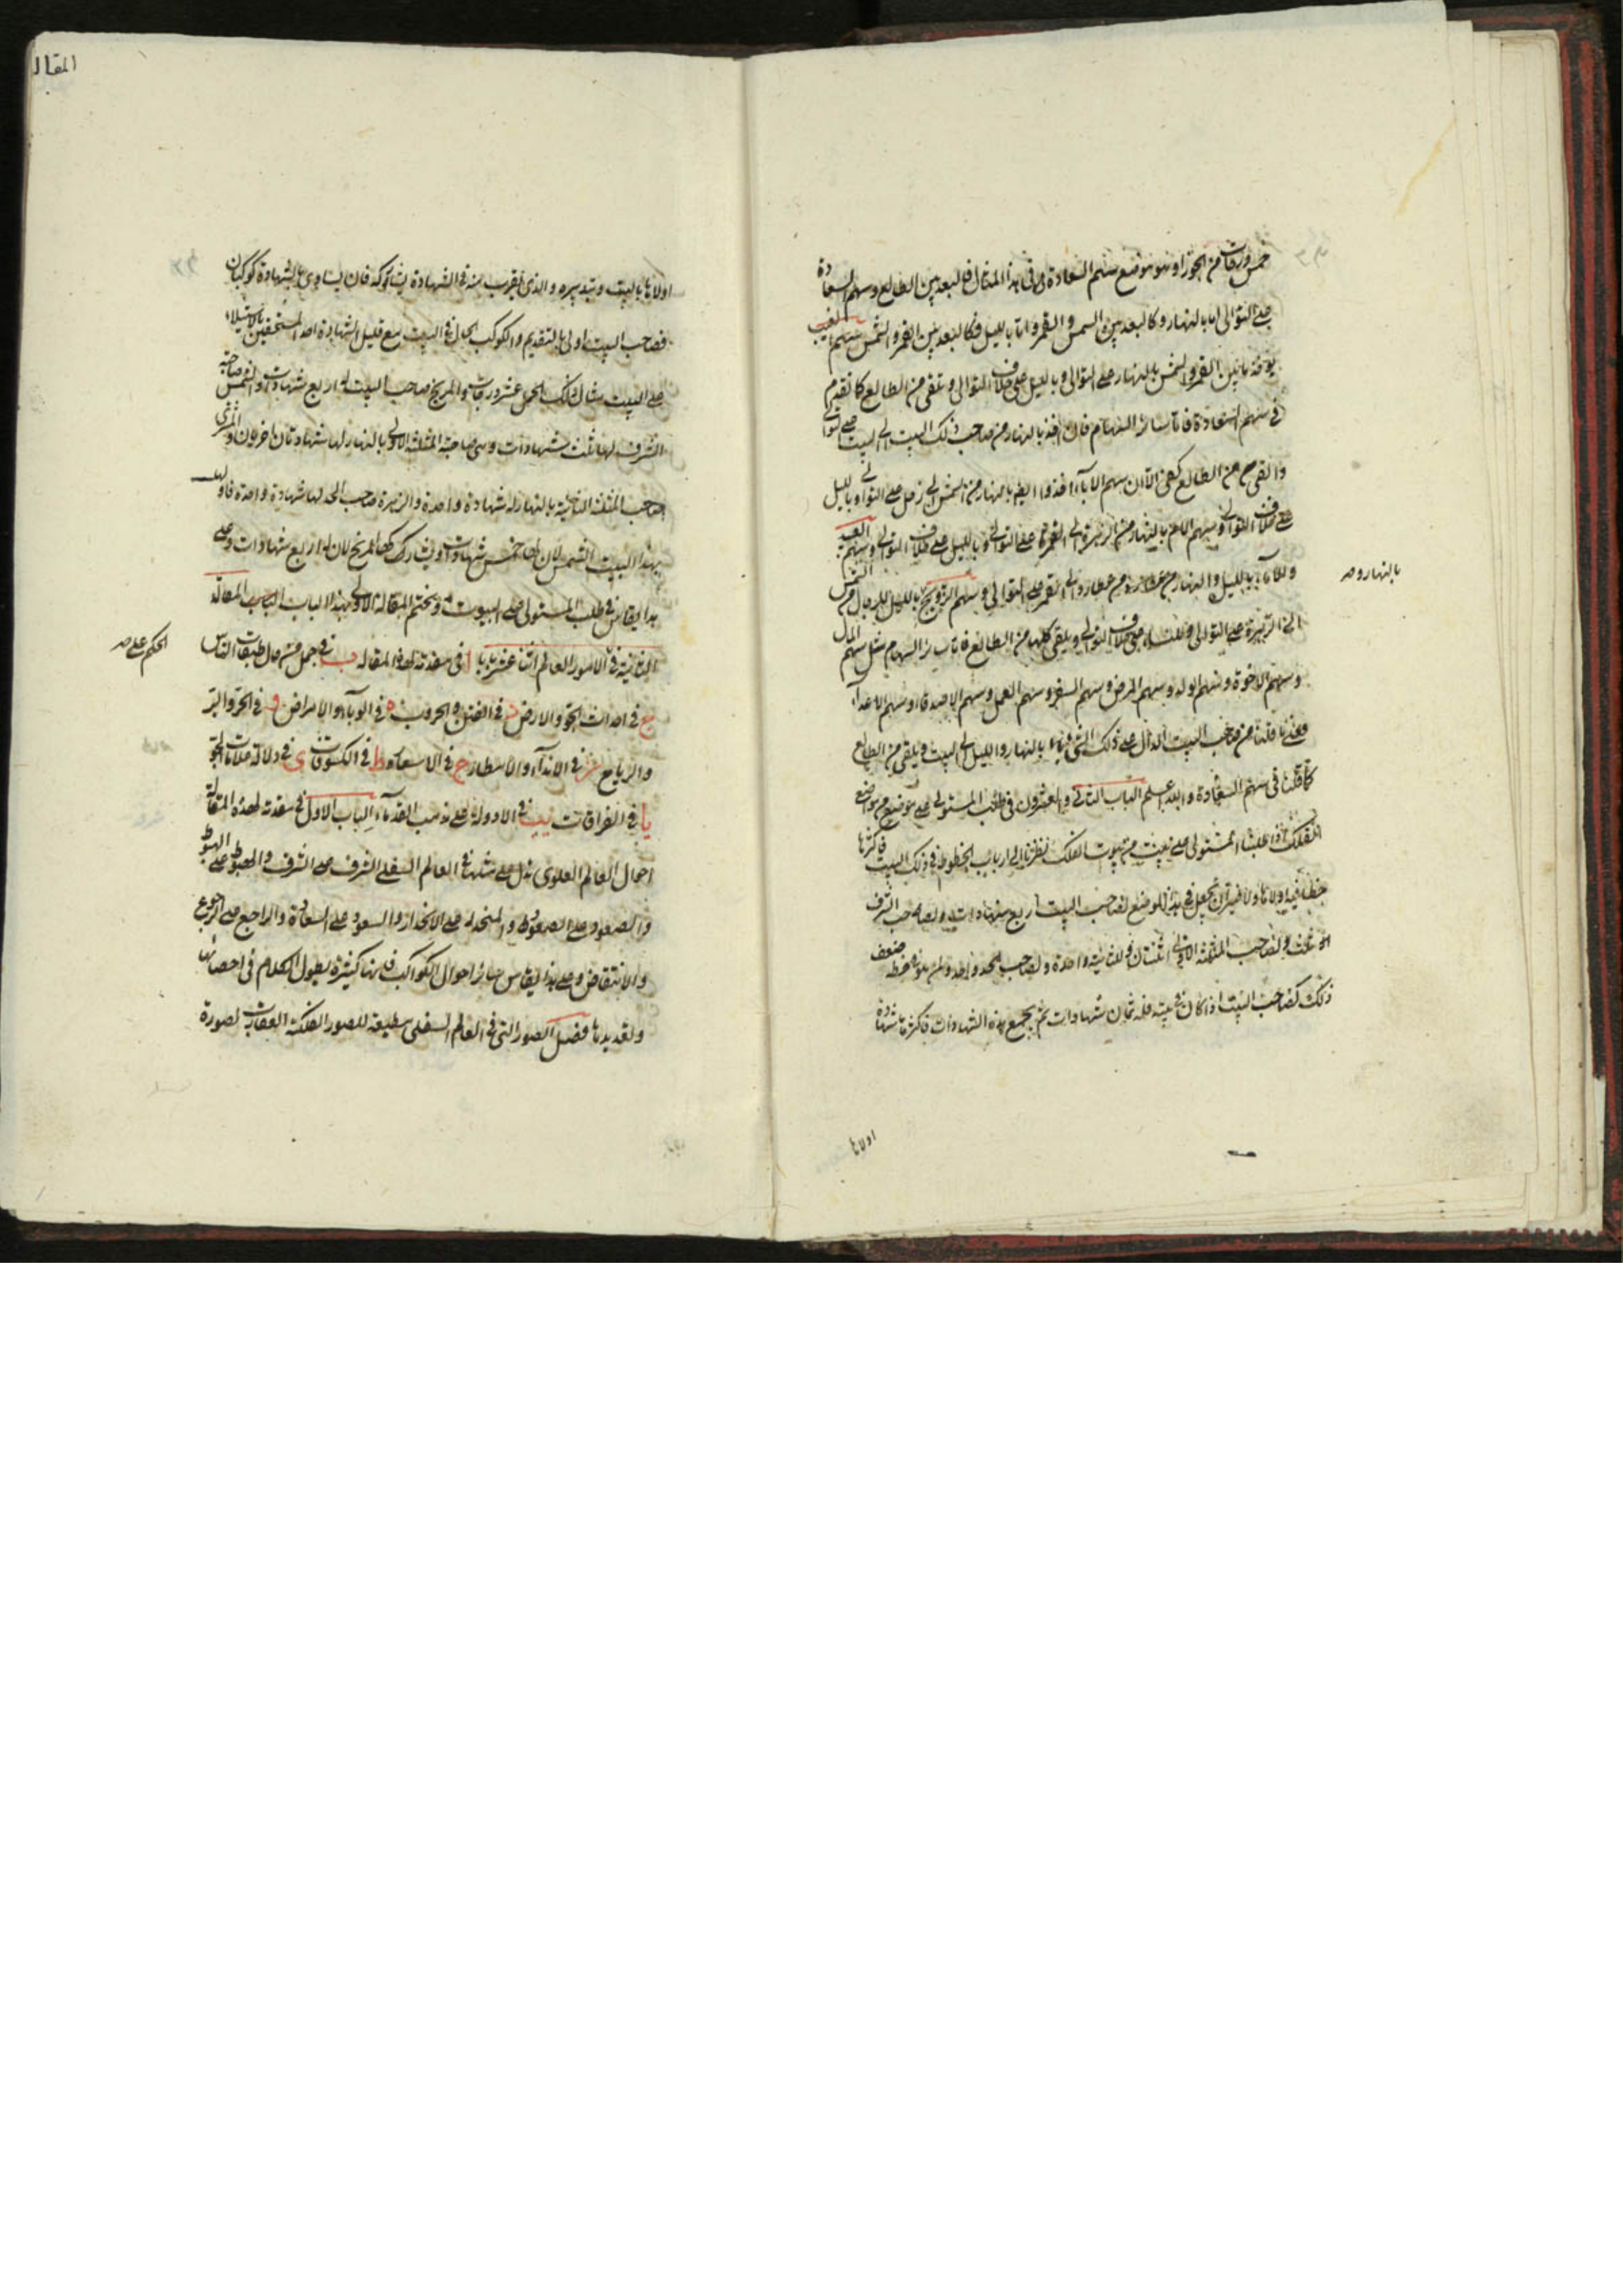 خمس درجات من الجوزا وهو موضع سهم السعادة وفى هذا المثال فالبعد بين الطالع وسهم السعادة
على التوالى اما بالنهار وكالبعد بين الشمس والقمر واما بالليل فكالبعد بين القمر والشمس سهم الغيب
يوخذ ما بين القمر والشمس بالنهار على التوالى وبالليل على خلاف التوالى ويلقى من الطالع كما تقدم
فى سهم السعادة فاما سائر السهام فان اخذ بالنهار من صاحب ذلك البيت الى البيت على التوالى
والقى من الطالع كفى الا ان سهم الاباء اخذوا ايضا بالنهار من الشمس الى زحل على التوالى وبالليل
على خلاف التوالى وسهم الام بالنهار من الزهرة الى القمر على التوالى وبالليل على خلاف التوالى وسهم العبيد
والاماء بالليل والنهار من عطارد الى القمر على التوالى وسهم التزويج بالليل للرجال من الشمس
الى الزهرة على التوالى وللنساء على خلاف التوالى ويلقى كلها من الطالع فاما سائر السهام مثل سهم المال
وسهم الاخوة وسهم الولد وسهم المرض وسهم السفر وسهم العمل وسهم الاصدقاء وسهم الاعداء
فعلى ما قلنا من صاحب البيت الدال على ذلك الشئ بالنهار والليل الى البيت ويلقى من الطالع
كما قلنا فى سهم السعادة والله اعلم الباب الثانى والعشرون فى طلب المستولى على موضع من مواضع
الفلك اذا طلبنا المستولى على بيت من بيوت الفلك نظرنا الى ارباب الحظوظ فى ذلك البيت فاكثرها
حظا فيه اولاها ولا ضير ان نجعل فى هذا الموضع لصاحب البيت اربع شهادات ولصاحب الشرف
ثلث ولصاحب المثلثة الاولى اثنتان وللثانية واحدة ولصاحب الحد واحدة ولمن هو فى حظه ضعف
ذلك كصاحب البيت اذا كان فى بيته فله ثمان شهادات ثم يجمع هذه الشهادات فاكثرها شهادة
بالنهار وصح
اولاها
المقال
اولاها بالبيت وتدبيره والذى يقرب منه فى الشهادة يشاركه فان تساوى فى الشهادة كوكبان
فصاحب البيت اولى بالتقديم والكوكب الحال فى البيت مع قليل الشهادة احد المستحقين بالاستيلاء
على البيت مثال ذلك الحمل عشر درجات والمريخ صاحب البيت له اربع شهادات والشمس صاحبة
الشرف لها ثلث شهادات وهى صاحبة المثلثة الاولى بالنهار لها شهادتان اخريان والمشترى
صاحب المثلثة الثانية بالنهار له شهادة واحدة والزهرة صاحب الحد لها شهادة واحدة فاولى
بهذا البيت الشمس لان لها خمس شهادات ويشاركها المريخ لان له اربع شهادات وعلى
هذا القياس فى طلب المستولى على البيوت ونختم المقالة الاولى بهذا الباب المقالة
الثانية فى الامور العالم اثنا عشر بابا ا فى مقدمة لهذه المقالة ب فى جمل من حال طبقات الناس
ج فى احداث الجو والارض د فى الفتن والحروب ه فى الوباء والامراض و فى الحر والبرد
والرياح ز فى الانداء والامطار ح فى الاسعار ط فى الكسوفات ى فى دلالة علامات الجو
يا فى القرانات يب فى الادوار على مذهب القدماء الباب الاول فى مقدمة لهذه المقالة
احوال العالم العلوى تدل على مثلها فى العالم السفلى الشرف على الشرف والهبوط على الهبوط
والصعود على الصعود والمنحدر على الانحدار والسعود على السعادة والراجع على الرجوع
والانتقاض وعلى هذا القياس سائر احوال الكواكب فانها كثيرة يطول الكلام فى احصائها
وتعديدها فصل الصور التى فى العالم السفلى مطيعة للصور الفلكية العقارب لصورة
الحكم على صح